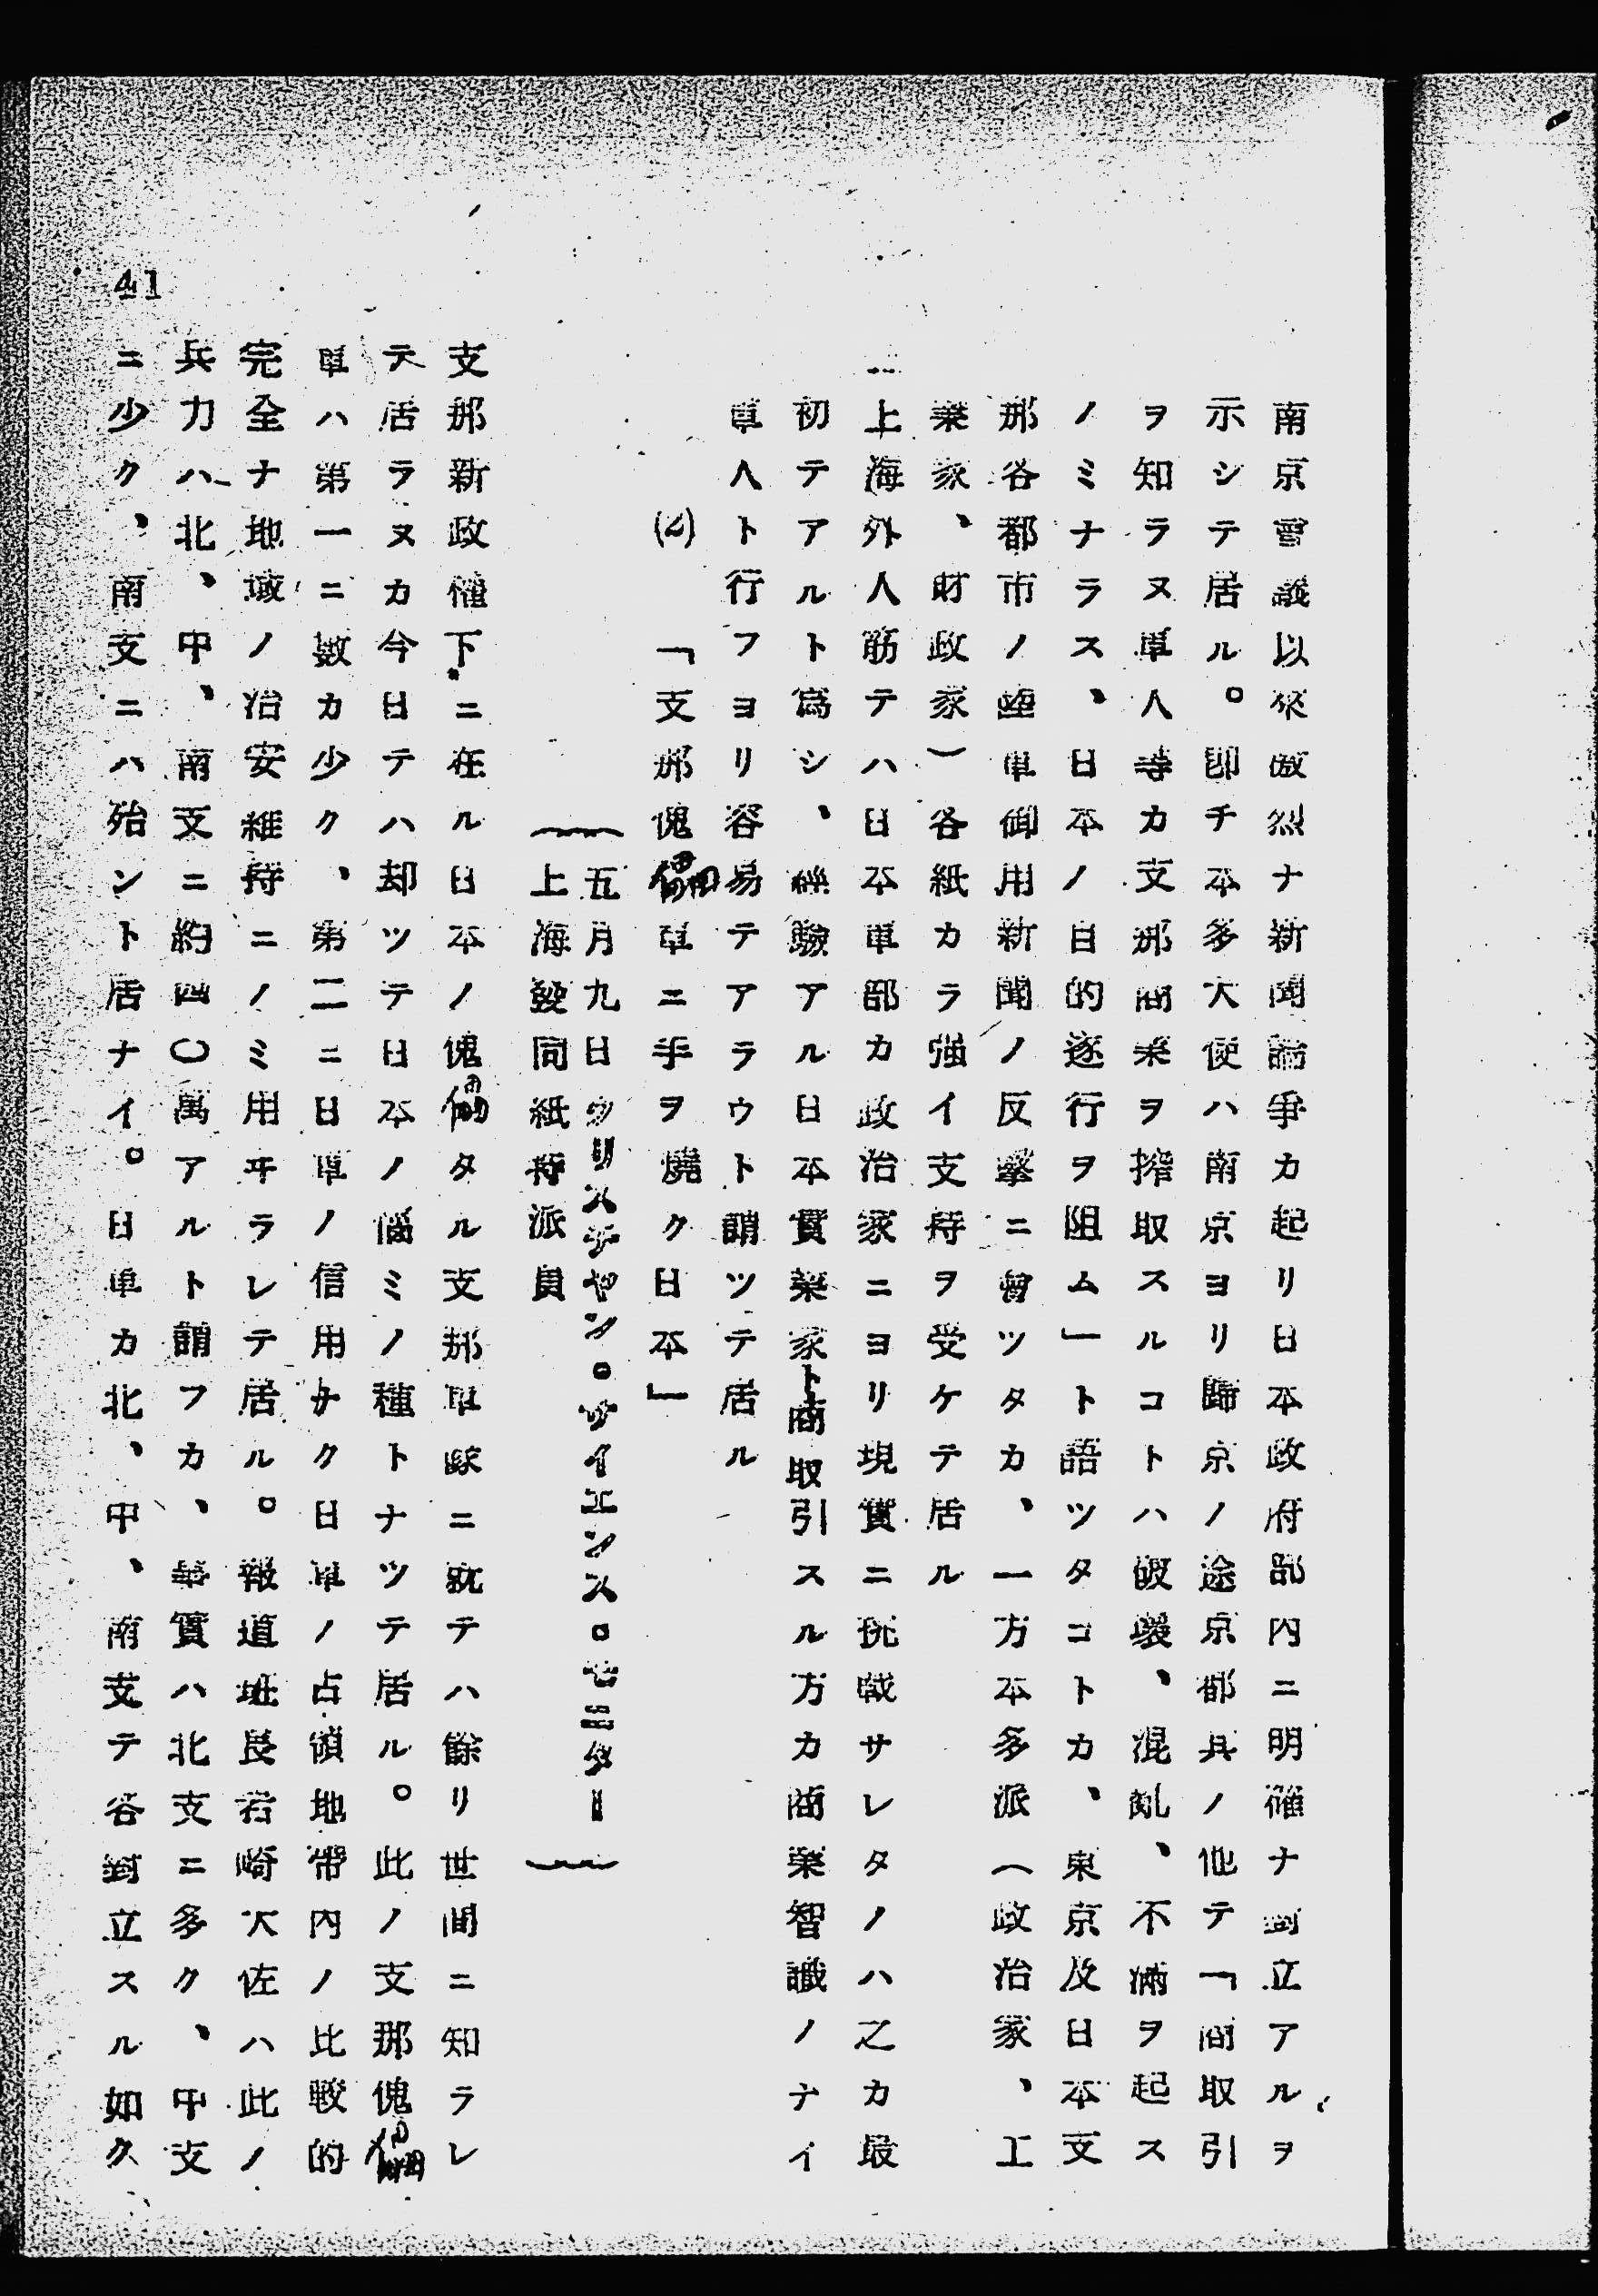 南京會議以來激烈ナ新聞論爭カ起リ日本政府部內ニ明確ナ對立アルヲ
示シテ居ル。卽チ本多大使ハ南京ヨリ歸京ノ途京都其ノ他テ「商取引
ヲ知ラヌ軍人等カ支那商業ヲ搾取スルコトハ破壞、混亂、不滿ヲ起ス
ノミナラス、日本ノ目的遂行ヲ阻ム」ト語ツタコトカ、東京及日本支
那各都市ノ陸軍御用新聞ノ反擊ニ會ツタカ、一方本多派(政治家、工
業家、財政家)各紙カラ强イ支持ヲ受ケテ居ル
上海外人筋テハ日本軍部カ政治家ニヨリ現實ニ挑戰サレタノハ之カ最
初テアルト爲シ、經驗アル日本實業家ト商取引スル方カ商業智識ノナイ
軍人ト行フヨリ容易テアラウト謂ツテ居ル
(2) 「支那傀儡軍ニ手ヲ燒ク日本」
(五月九日クリスチヤン。サイエンス。モニター
上海發同紙特派員)
支那新政權下ニ在ル日本ノ傀儡タル支那軍隊ニ就テハ餘リ世間ニ知ラレ
テ居ラヌカ今日テハ却ツテ日本ノ惱ミノ種トナツテ居ル。此ノ支那傀儡
軍ハ第一ニ數カ少ク、第二ニ日軍ノ信用ナク日軍ノ占領地帶內ノ比較的
完全ナ地域ノ治安維持ニノミ用ヰラレテ居ル。報道班長岩崎大佐ハ此ノ
兵力ハ北、中、南支ニ約四〇萬アルト謂フカ、事實ハ北支ニ多ク、中支
ニ少ク、南支ニハ殆ント居ナイ。日軍カ北、中、南支テ各對立スル如ク
41